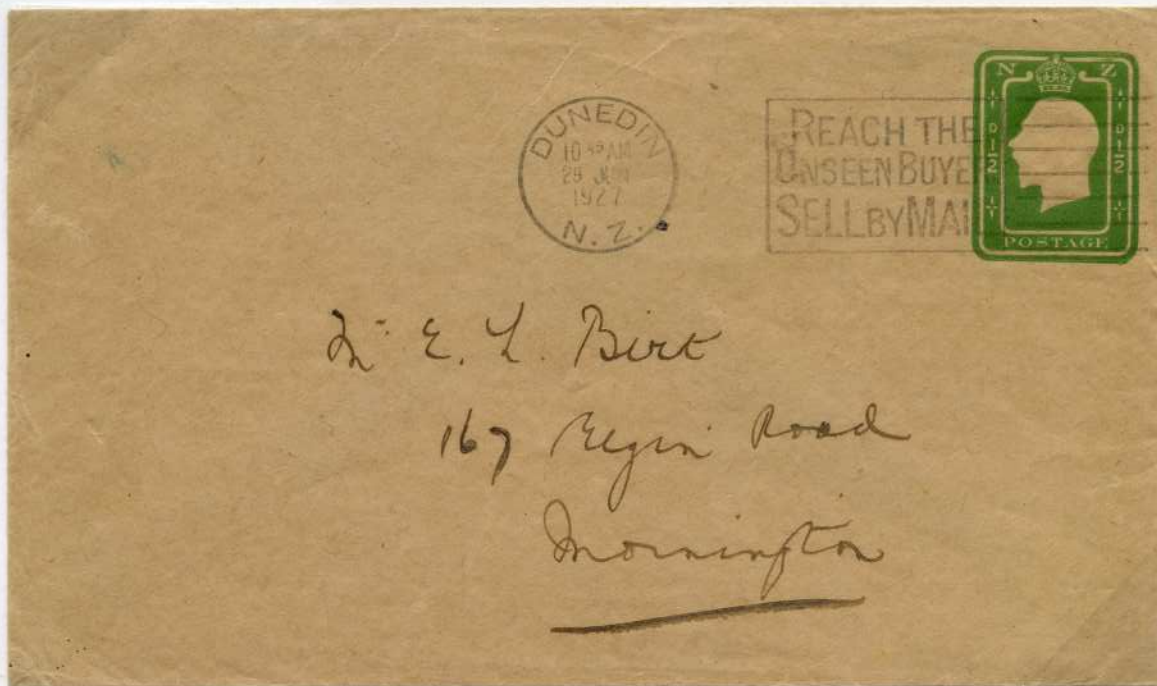 N Z
DUNEDIN
10 45 AM
29 JUN
1927
N.Z.
REACH THE
UNSEEN BUYER
SELL BY MAI
D 1/2
D 1/2
POSTAGE
Mr E. L. Birt
167 Elgin Road
Mornington